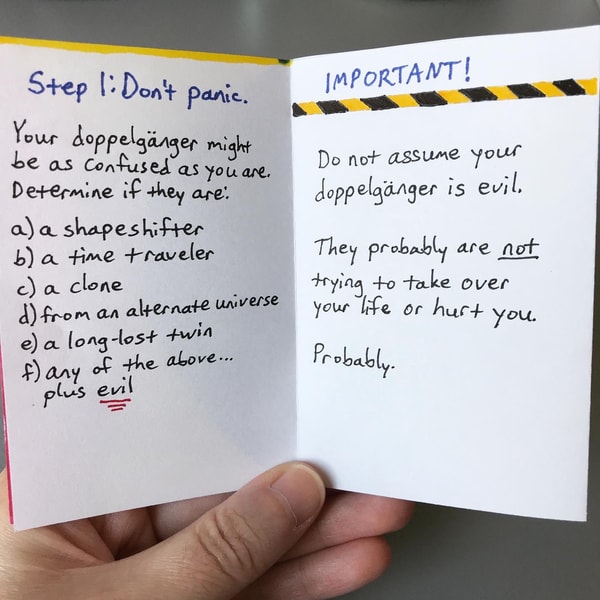 Step 1: Don't panic.
Your doppelgänger might
be as confused as you are.
Determine if they are:
a) a shapeshifter
b) a time traveler
c) a clone
d) from an alternate universe
e) a long-lost twin
f) any of the above...
plus evil
IMPORTANT!
Do not assume your
doppelgänger is evil.
They probably are not
trying to take over
your life or hurt you.
Probably.